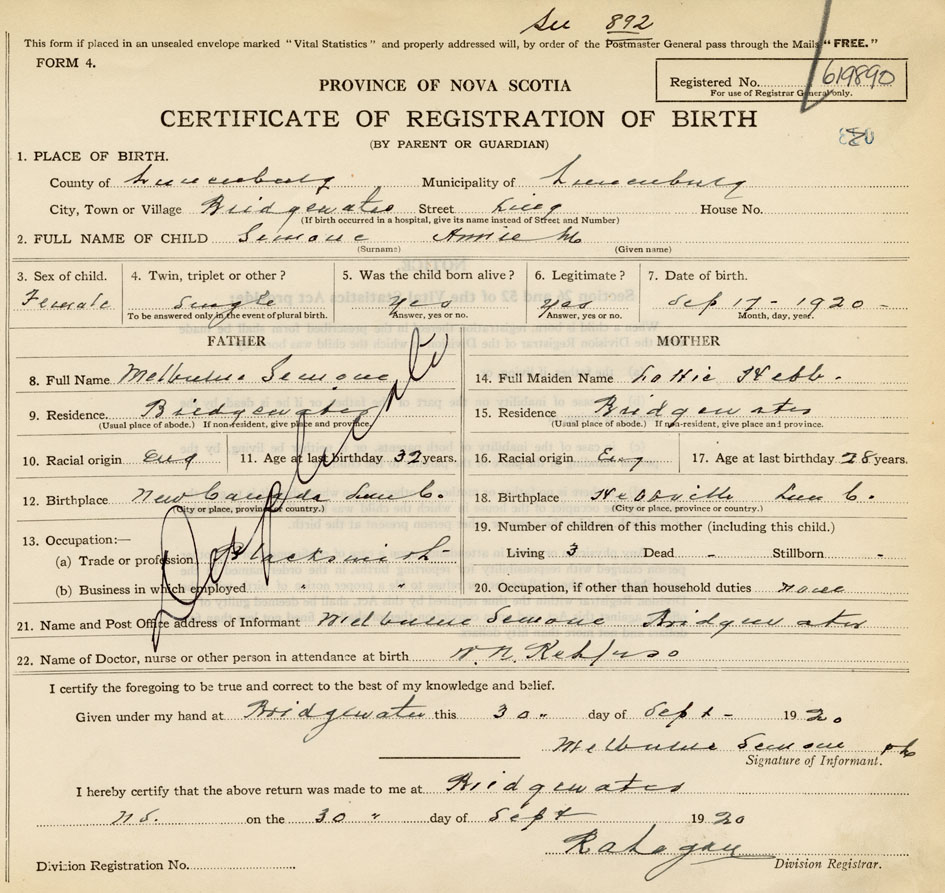 See 892
This form if placed in an unsealed envelope marked "Vital Statistics" and properly addressed will, by order of the Postmaster General pass through the Mails "FREE."
FORM 4.
PROVINCE OF NOVA SCOTIA
Registered No. 619890
For use of Registrar General only.
CERTIFICATE OF REGISTRATION OF BIRTH
(BY PARENT OR GUARDIAN)
1. PLACE OF BIRTH.
County of Lunenburg Municipality of Lunenburg
City, Town or Village Bridgewater Street King House No.
(If birth occurred in a hospital, give its name instead of Street and Number)
2. FULL NAME OF CHILD Semone Annie M
(Surname) (Given name)
3. Sex of child. 4. Twin, triplet or other? 5. Was the child born alive? 6. Legitimate? 7. Date of birth.
Female Single Yes Yes Sep 17 - 1920 -
To be answered only in the event of plural birth. Answer, yes or no. Answer, yes or no. Month, day, year.
FATHER MOTHER
8. Full Name Melburne Semone 14. Full Maiden Name Lottie Hebb.
9. Residence. Bridgewater 15. Residence Bridgewater
(Usual place of abode.) If non-resident, give place and province. (Usual place of abode.) If non-resident, give place and province.
10. Racial origin Eng 11. Age at last birthday 32 years. 16. Racial origin Eng 17. Age at last birthday 28 years.
12. Birthplace New Canada Lun C. 18. Birthplace Hebbville Lun C.
(City or place, province or country.) (City or place, province or country.)
13. Occupation:— 19. Number of children of this mother (including this child.)
(a) Trade or profession Blacksmith - Living 3 Dead - Stillborn -
(b) Business in which employed " " 20. Occupation, if other than household duties none
Duplicate
21. Name and Post Office address of Informant Melburne Semone Bridgewater
22. Name of Doctor, nurse or other person in attendance at birth W. N. Rehfuso
I certify the foregoing to be true and correct to the best of my knowledge and belief.
Given under my hand at Bridgewater this 30 " day of Sept - 1920
Melburne Semone
Signature of Informant.
I hereby certify that the above return was made to me at Bridgewater
N.S. on the 30 " day of Sept 1920
Division Registration No. Division Registrar.